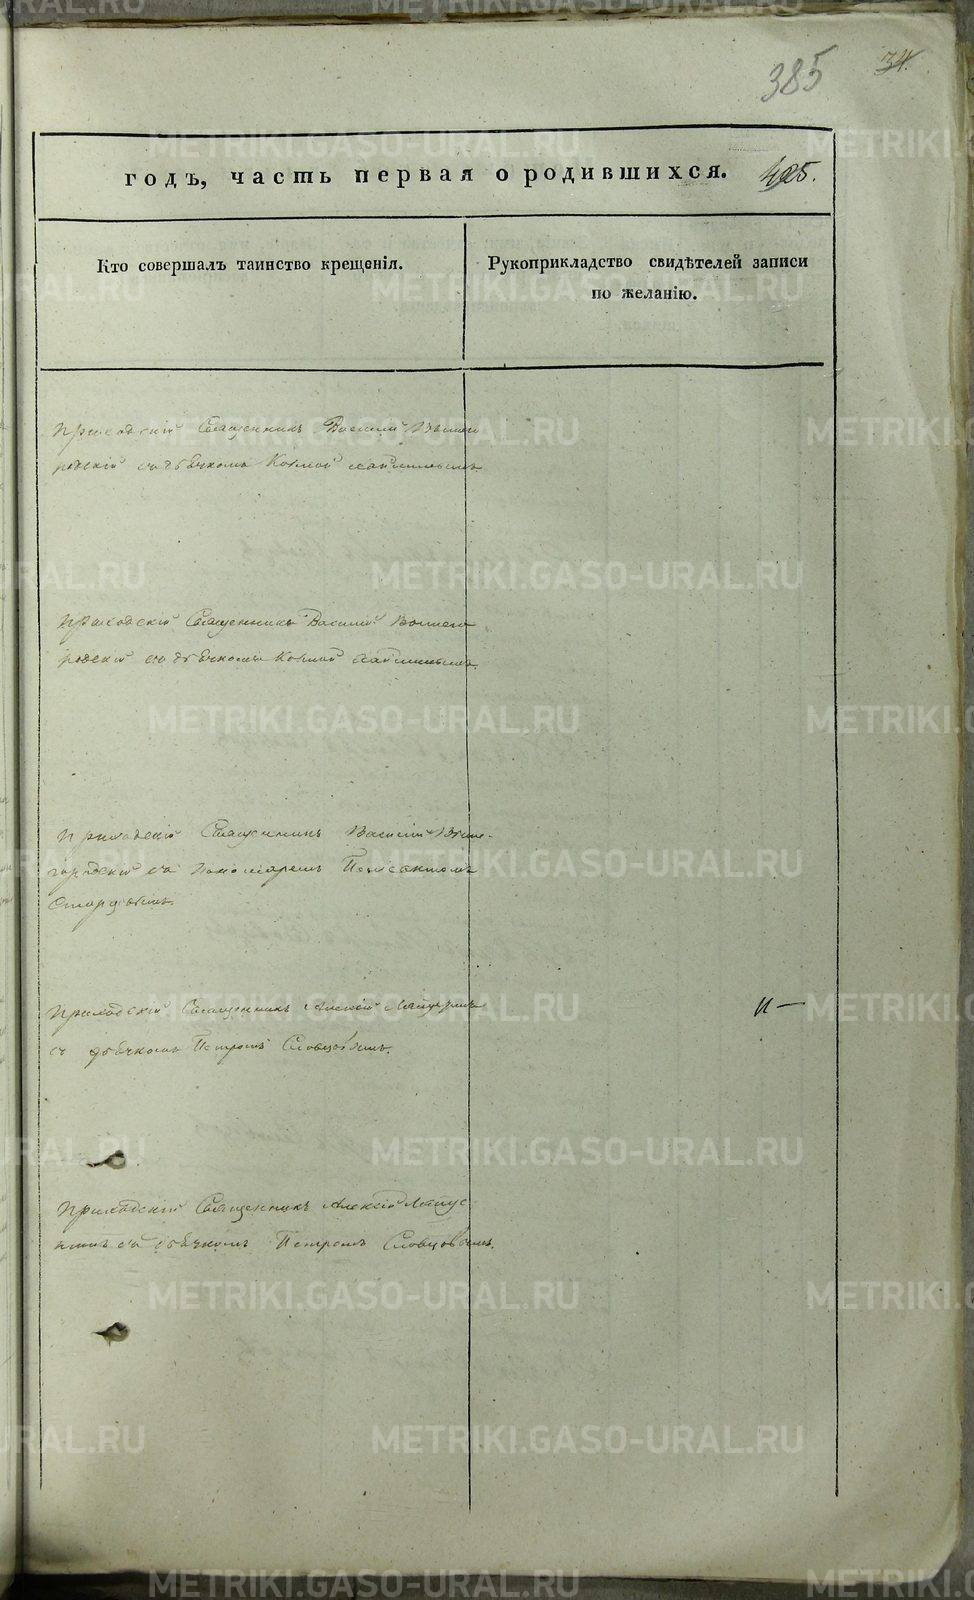 385 34.
годъ, часть первая о родившихся. 425.
Кто совершалъ таинство крещенія.
Рукоприкладство свидѣтелей записи
по желанію.
Приходскій Священникъ Василій Вышего
родскій съ дьячкомъ Козмой
Приходскій Священникъ Василій Вышего
родскій съ дьячкомъ Козмой
Приходскій Священникъ Василій Выше-
городскій съ Пономаремъ
Приходскій Священникъ Алексій
съ дьячкомъ Петромъ Словцовымъ.
Приходскій Священникъ Алексій
съ дьячкомъ Петромъ Словцовымъ.
METRIKI.GASO-URAL.RU